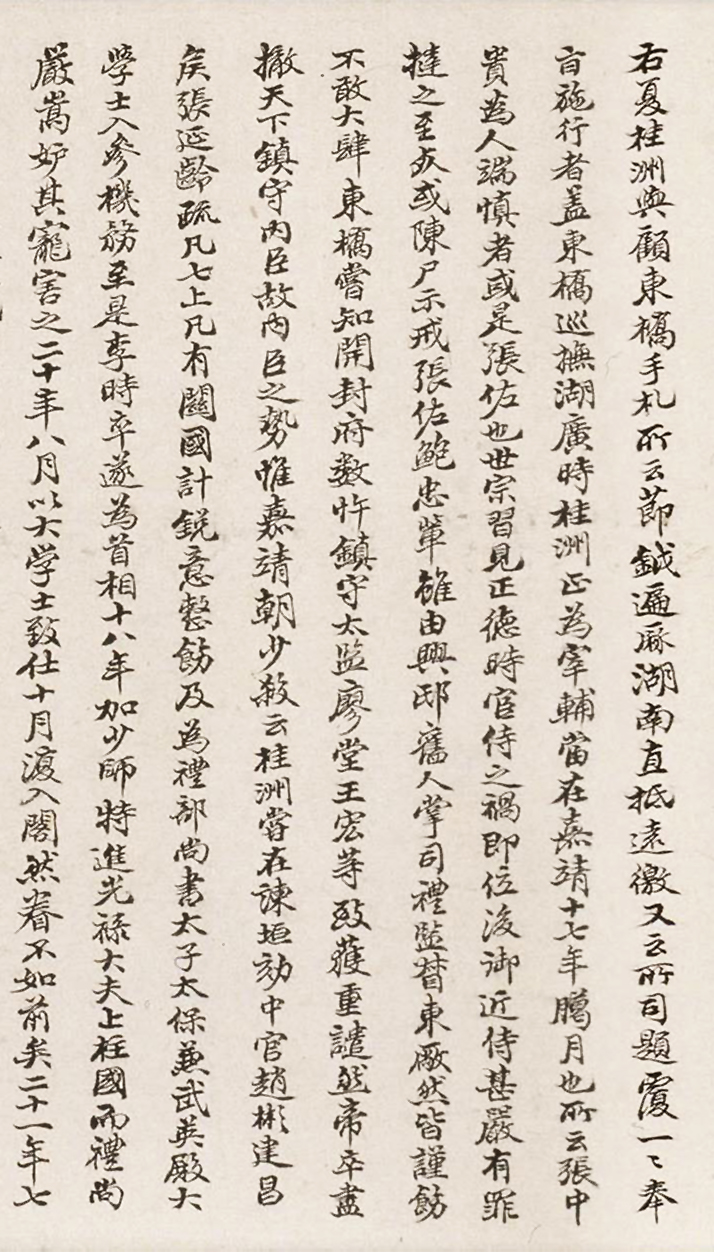 右夏桂洲與顧東橋手札所云節鉞遍厤湖南直抵遠徼又云所司題覆一〻奉
旨施行者蓋東橋巡撫湖廣時桂洲正為宰輔當在嘉靖十七年臈月也所云張中
貴為人端慎者或是張佐也世宗習見正德時宦侍之禍即位後御近侍甚嚴有罪
撻之至死或陳尸示戒張佐鮑忠輩雖由興邸舊人掌司禮監督東厰然皆謹飭
不敢大肆東橋嘗知開封府數忤鎮守太監廖堂王宏等致獲重譴然帝卒盡
撤天下鎮守內臣故內臣之勢惟嘉靖朝少殺云桂洲嘗在諫垣劾中官趙彬建昌
矦張延齡疏凡七上凡有關國計銳意整飭及為禮部尚書太子太保兼武英殿大
學士入參機務至是李時卒遂為首相十八年加少師特進光祿大夫上柱國而禮尚
嚴嵩妒其寵害之二十年八月以大学士致仕十月復入閣然眷不如前矣二十一年七